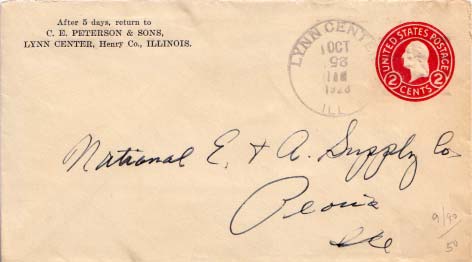 After 5 days, return to
C. E. PETERSON & SONS,
LYNN CENTER, Henry Co., ILLINOIS.
LYNN CENTE
OCT
25
1928
ILL
UNITED STATES POSTAGE
2 CENTS 2
National E. & A. Supply Co
Peoria
Ill
9/90
50